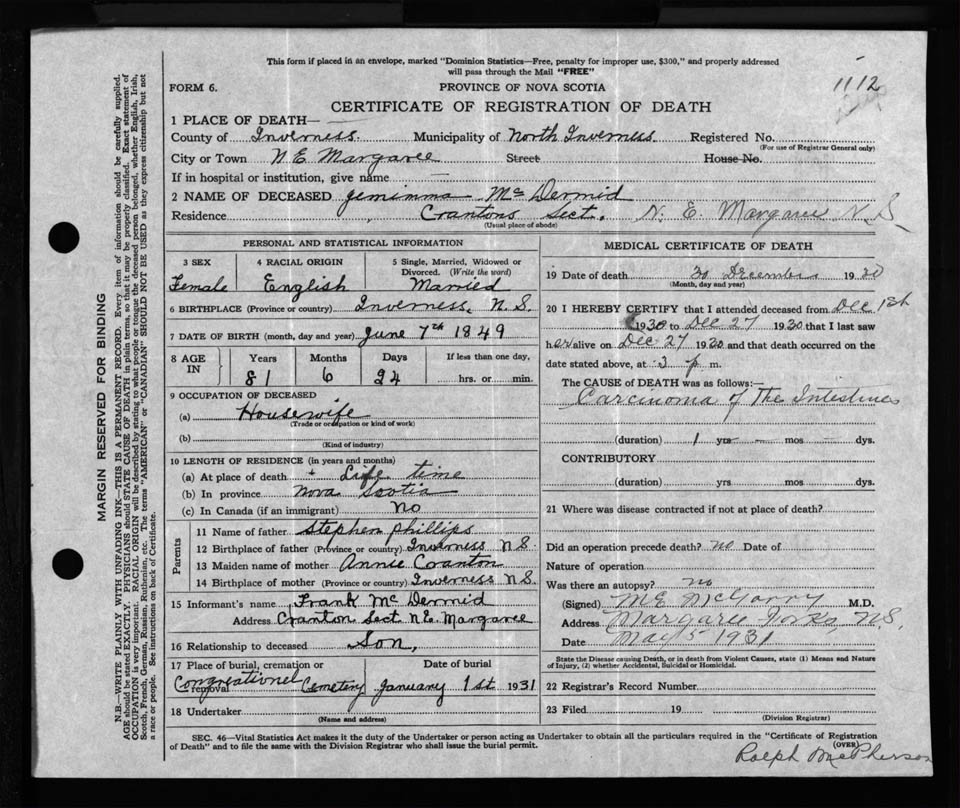 This form if placed in an envelope, marked "Dominion Statistics—Free, penalty for improper use, $300," and properly addressed
will pass through the Mail "FREE"
1112
FORM 6.
PROVINCE OF NOVA SCOTIA
CERTIFICATE OF REGISTRATION OF DEATH
1 PLACE OF DEATH—
County of Inverness Municipality of North Inverness Registered No.
(For use of Registrar General only)
City or Town N. E. Margaree Street House No.
If in hospital or institution, give name —
2 NAME OF DECEASED Jemimma McDermid
Residence Crantons Sect. N. E. Margaree N S
(Usual place of abode)
PERSONAL AND STATISTICAL INFORMATION
3 SEX 4 RACIAL ORIGIN 5 Single, Married, Widowed or Divorced. (Write the word)
Female English Married
6 BIRTHPLACE (Province or country) Inverness, N. S.
7 DATE OF BIRTH (month, day and year) June 7th 1849
8 AGE IN Years Months Days If less than one day,
81 6 24 hrs. or min.
9 OCCUPATION OF DECEASED
(a) Housewife
(Trade or occupation or kind of work)
(b)
(Kind of industry)
10 LENGTH OF RESIDENCE (in years and months)
(a) At place of death Life time
(b) In province Nova Scotia
(c) In Canada (if an immigrant) No
Parents
11 Name of father Stephen Phillips
12 Birthplace of father (Province or country) Inverness N S.
13 Maiden name of mother Annie Cranton
14 Birthplace of mother (Province or country) Inverness N S.
15 Informant's name Frank McDermid
Address Cranton Sect N. E. Margaree
16 Relationship to deceased Son,
17 Place of burial, cremation or removal Date of burial
Congrationel Cemetery January 1st 1931
18 Undertaker
(Name and address)
MEDICAL CERTIFICATE OF DEATH
19 Date of death 30 December 1930
(Month, day and year)
20 I HEREBY CERTIFY that I attended deceased from Dec 1st
1930 to Dec 27 1930 that I last saw
her alive on Dec 27 1930 and that death occurred on the
date stated above, at 3 p m.
The CAUSE OF DEATH was as follows:—
Carcinoma of The Intestines
(duration) 1 yrs — mos — dys.
CONTRIBUTORY
(duration) yrs mos dys.
21 Where was disease contracted if not at place of death?
Did an operation precede death? no Date of
Nature of operation
Was there an autopsy? no
(Signed) M E McGarry M.D.
Address Margaree Forks, N.S.
Date May 5 1931
State the Disease causing Death, or in death from Violent Causes, state (1) Means and Nature
of Injury, (2) whether Accidental, Suicidal or Homicidal.
22 Registrar's Record Number
23 Filed 19
(Division Registrar)
SEC. 46—Vital Statistics Act makes it the duty of the Undertaker or person acting as Undertaker to obtain all the particulars required in the "Certificate of Registration
of Death" and to file the same with the Division Registrar who shall issue the burial permit.
(OVER)
Ralph MacPherson
MARGIN RESERVED FOR BINDING
N.B.—WRITE PLAINLY WITH UNFADING INK—THIS IS A PERMANENT RECORD. Every item of information should be carefully supplied.
AGE should be stated EXACTLY. PHYSICIANS should STATE CAUSE OF DEATH in plain terms, so that it may be properly classified. Exact statement of
OCCUPATION is very important. RACIAL ORIGIN will be described by stating to what people or tongue the deceased person belonged, whether English, Irish,
Scotch, French, German, Russian, Ruthenian, etc. The terms "AMERICAN" or "CANADIAN" SHOULD NOT BE USED as they express citizenship but not
a race or people. See instructions on back of Certificate.